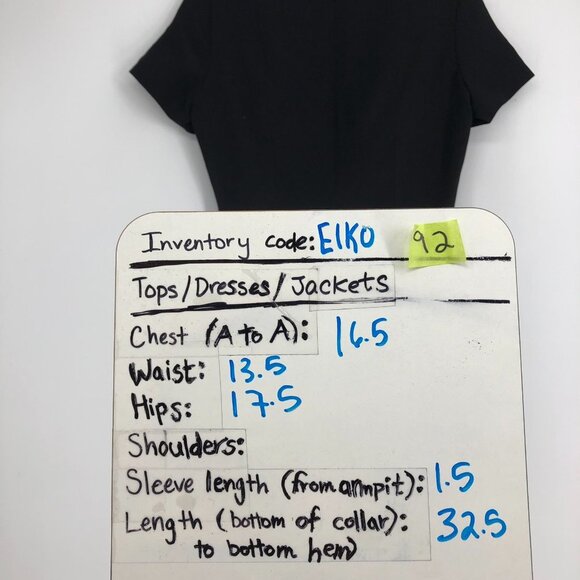 Inventory code: EIKO 92
Tops/Dresses/Jackets
Chest (A to A): 16.5
Waist: 13.5
Hips: 17.5
Shoulders:
Sleeve length (from armpit): 1.5
Length (bottom of collar): 32.5
to bottom hem)